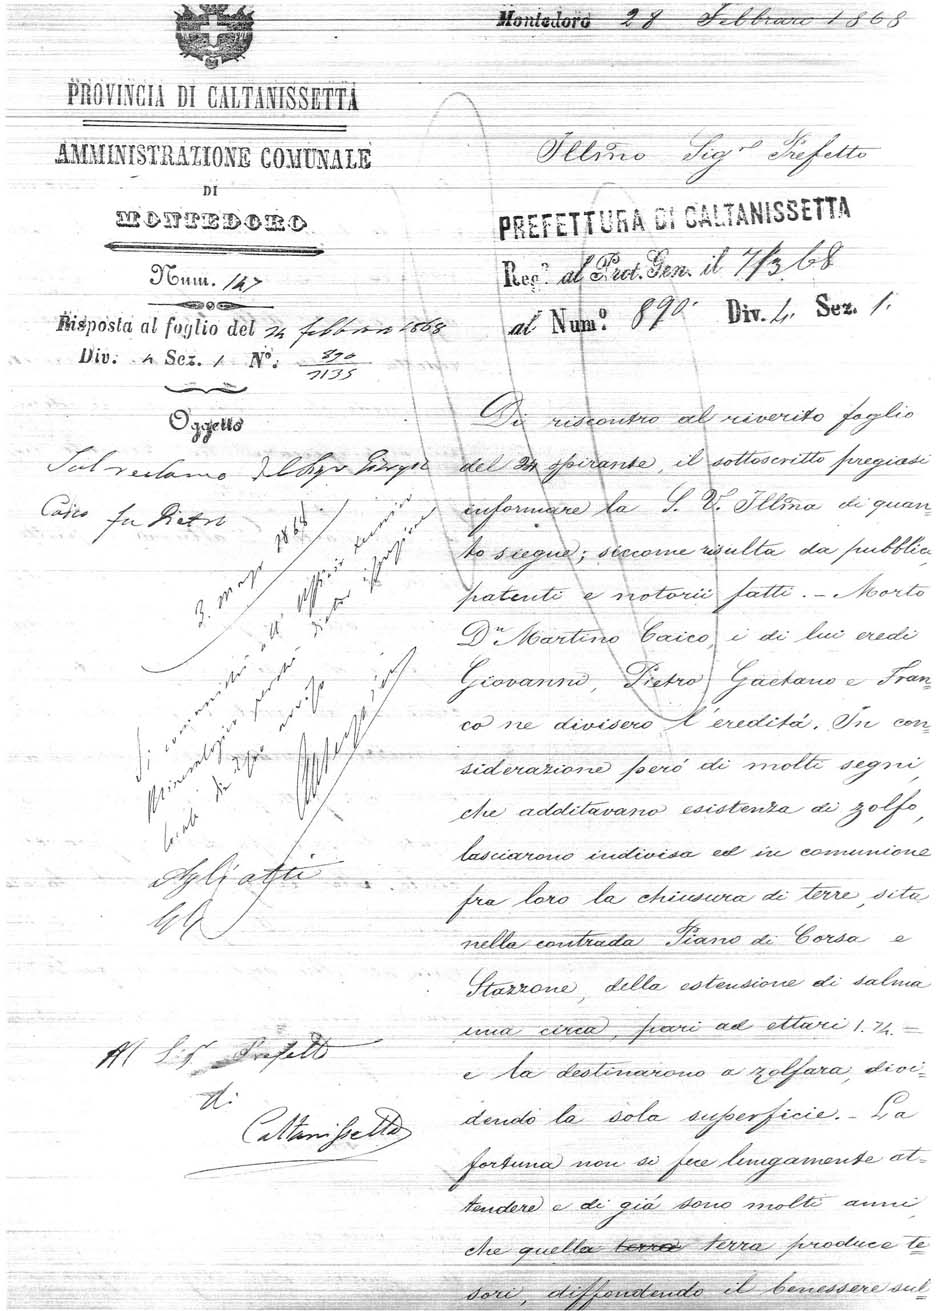 Montedoro 28 Febbraro 1868
PROVINCIA DI CALTANISSETTA
AMMINISTRAZIONE COMUNALE
DI
MONTEDORO
Num. 147
Risposta al foglio del 24 febbraro 1868
Div. 4 Sez. 1 Nº. 890
7135
Oggetto
Sul reclamo del Sigr Giorgio
Caico fu Pietro
3. Marzo 1868
Si commetti all' Ufficio
Mineralogico perchè
locali di
Agli atti
Al Sigr Prefetto
di
Caltanissetta
Illmo Sigre Prefetto
PREFETTURA DI CALTANISSETTA
Reg.º al Prot. Gen. il 7/3 68
al Num.º 890 Div. 4. Sez. 1.
Di riscontro al riverito foglio
del 24 spirante, il sottoscritto pregiasi
informare la S. V. Illma di quan=
to siegue; siccome risulta da pubblici
patenti e notorii fatti. – Morto
Dn Martino Caico, i di lui eredi
Giovanni, Pietro Gaetano e Fran=
co ne divisero l'eredità. In con=
siderazione però di molti segni,
che additavano esistenza di zolfo,
lasciarono indivisa ed in comunione
fra loro la chiusura di terre, sita
nella contrada Piano di Corsa e
Stazzone, della estensione di salma
una circa, pari ad ettari 1.74. =
e la destinarono a zolfara, divi=
dendo la sola superficie. – La
fortuna non si fece lungamente at=
tendere e di già sono molti anni,
che quella terra terra produce te=
sori, diffondendo il benessere sul=